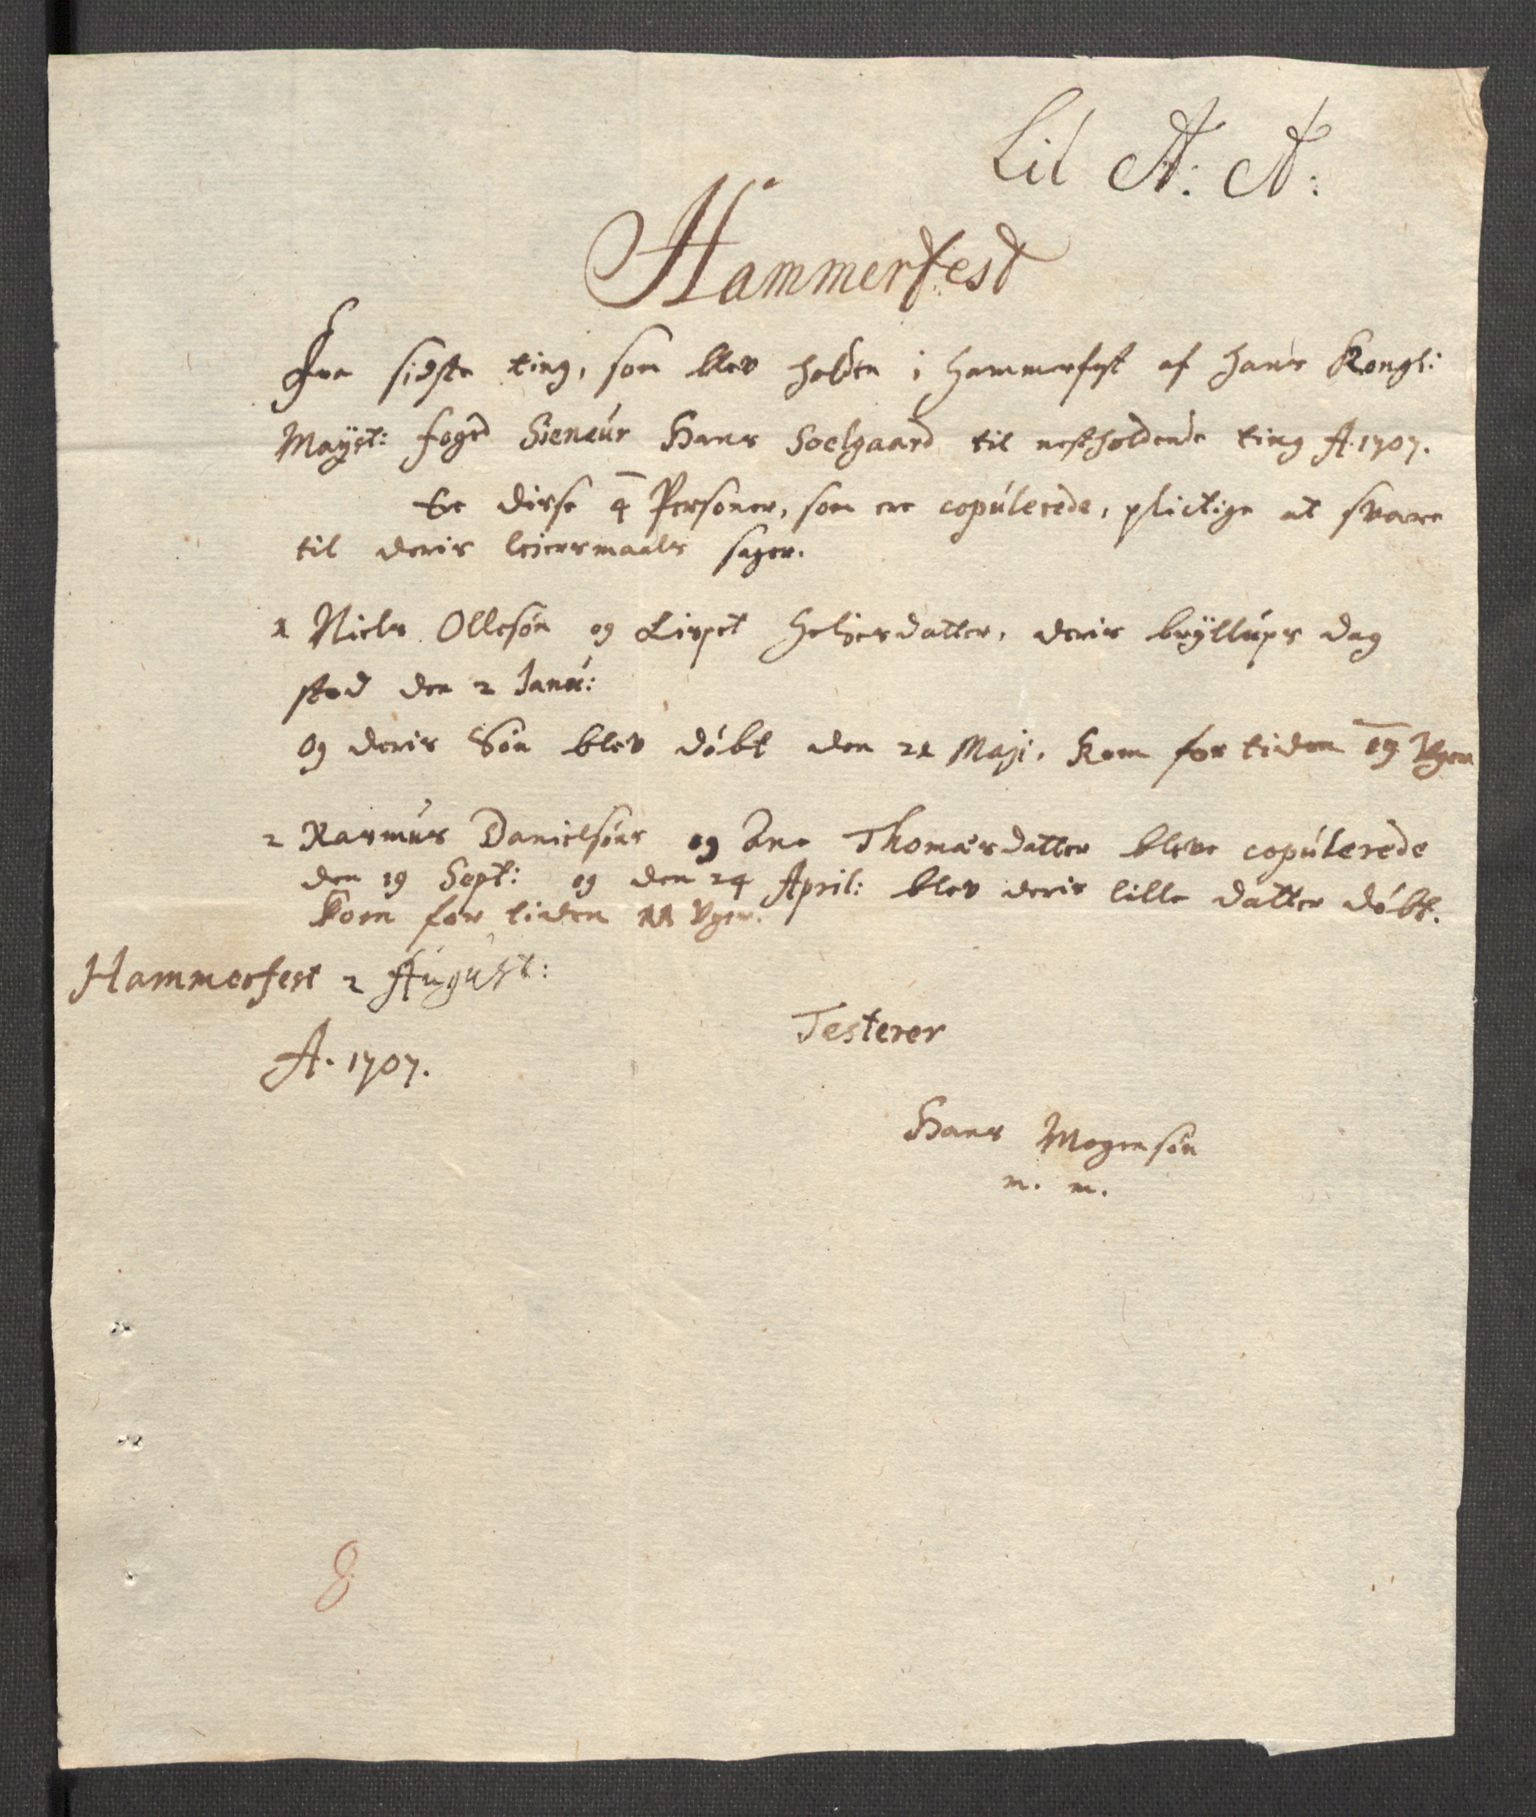 Lit A: A:
Hammerfest
Fra sidste ting, som blev holden i Hammerfest af hans Kongl:
Mayst: foged Sieneur Hans Soelgaard til nestholdende ting A. 1707.
Ere disse 4 Personer, som ere copulerede, plictige at svare
til deris leiersmaals sager.
1 Niels Ollesøn og Lispet Helje​rsdatter, deris bryllups dag
stod den 2 Janu:
og deris Søn blev døbt den 21 Maji, Kom for tiden 19 Uger
2 Rasmus Danielsøns og Ane Thomæsdatter bleve copulerede
den 19 Sept: og den 24 April: blev deris lille datter døbt.
Kom for tiden 11 Uger.
Hammerfest 2 August:
A. 1707.
Testerer
Hans Mogensøn
m. m.
8